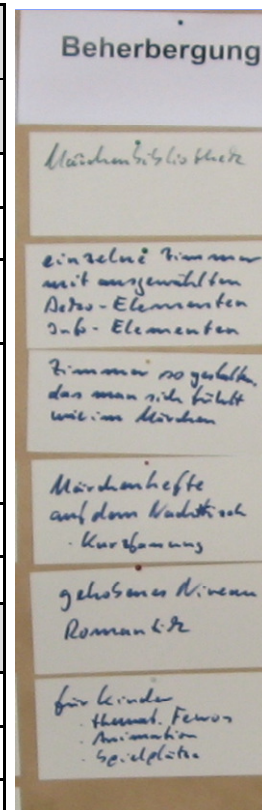 Beherbergung
Märchenbibliothek
einzelne Zimmer
mit ausgewählten
Deko-Elementen
Info-Elementen
Zimmer so gestalten,
das man sich fühlt
wie im Märchen
Märchenhefte
auf dem Nachttisch
- Kurzfassung
gehobenes Niveau
Romantik
für Kinder
- themat. Fewos
- Animation
- Spielplätze